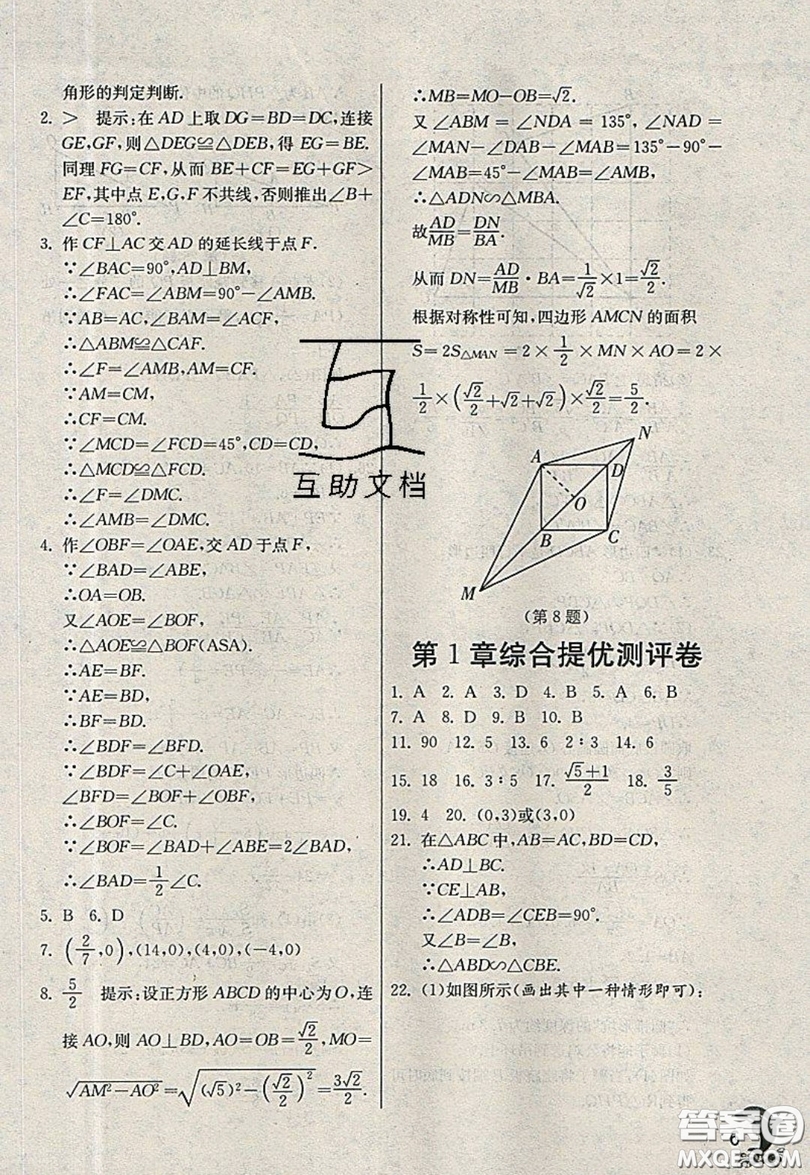 角形的判定判断.
2. ＞ 提示:在 AD 上取 DG=BD=DC,连接
GE,GF,则△DEG≌△DEB,得 EG=BE.
同理 FG=CF,从而 BE+CF=EG+GF>
EF,其中点 E,G,F 不共线,否则推出∠B+
∠C=180°.
3. 作 CF⊥AC 交 AD 的延长线于点 F.
∵∠BAC=90°,AD⊥BM,
∴∠FAC=∠ABM=90°-∠AMB.
∵AB=AC,∠BAM=∠ACF,
∴△ABM≌△CAF.
∴∠F=∠AMB,AM=CF.
∵AM=CM,
∴CF=CM.
∵∠MCD=∠FCD=45°,CD=CD,
∴△MCD≌△FCD.
∴∠F=∠DMC.
∴∠AMB=∠DMC.
4. 作∠OBF=∠OAE,交 AD 于点 F,
∵∠BAD=∠ABE,
∴OA=OB.
又∠AOE=∠BOF,
∴△AOE≌△BOF(ASA).
∴AE=BF.
∵AE=BD,
∴BF=BD.
∴∠BDF=∠BFD.
∵∠BDF=∠C+∠OAE,
∠BFD=∠BOF+∠OBF,
∴∠BOF=∠C.
∵∠BOF=∠BAD+∠ABE=2∠BAD,
∴∠BAD=1/2∠C.
5. B 6. D
7. (2/7,0),(14,0),(4,0),(-4,0)
8. 5/2 提示:设正方形 ABCD 的中心为 O,连
接 AO,则 AO⊥BD,AO=OB=√2/2,MO=
√(AM²-AO²)=√((√5)²-(√2/2)²)=3√2/2.
∴MB=MO-OB=√2.
又∠ABM=∠NDA=135°,∠NAD
=∠MAN-∠DAB-∠MAB=135°-90°-
∠MAB=45°-∠MAB=∠AMB,
∴△ADN∽△MBA.
故AD/MB=DN/BA.
从而 DN=AD/MB·BA=1/√2×1=√2/2.
根据对称性可知,四边形 AMCN 的面积
S=2S△MAN=2×1/2×MN×AO=2×
1/2×(√2/2+√2+√2)×√2/2=5/2.
N
A
D
O
B
C
M
(第 8 题)
第 1 章综合提优测评卷
1. A 2. A 3. D 4. B 5. A 6. B
7. A 8. D 9. B 10. B
11. 90 12. 5 13. 6 2∶3 14. 6
15. 18 16. 3∶5 17. √5+1/2 18. 3/5
19. 4 20. (0,3)或(3,0)
21. 在△ABC 中,AB=AC,BD=CD,
∴AD⊥BC.
∵CE⊥AB,
∴∠ADB=∠CEB=90°.
又∠B=∠B,
∴△ABD∽△CBE.
22. (1)如图所示(画出其中一种情形即可):
互助文档
答案圈
MXQE.COM